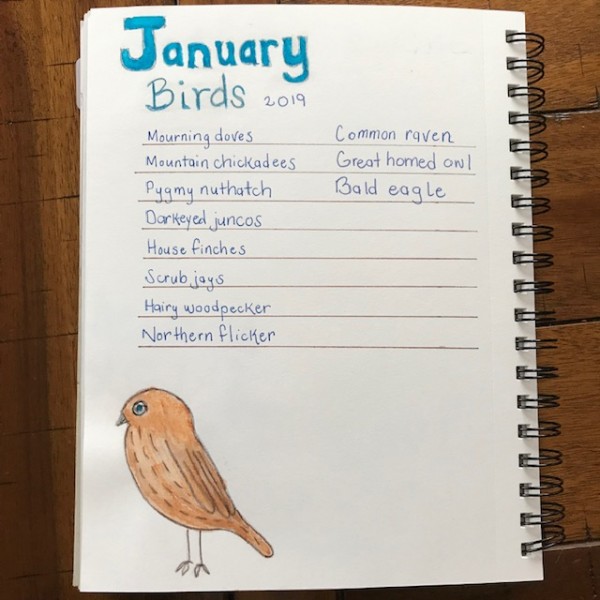 January
Birds 2019
Mourning doves
Mountain chickadees
Pygmy nuthatch
Darkeyed juncos
House finches
Scrub jays
Hairy woodpecker
Northern flicker
Common raven
Great horned owl
Bald eagle